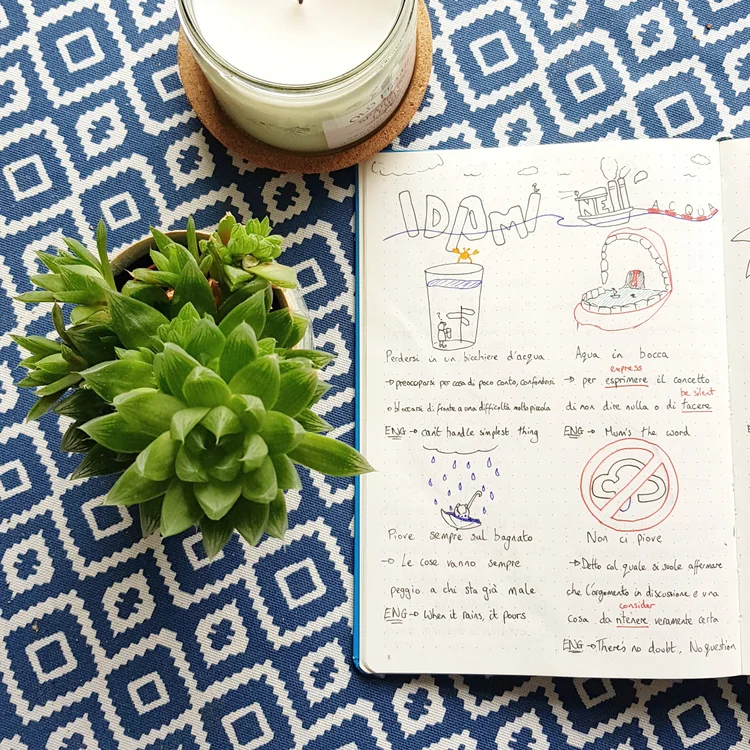 IDIOMI NELL' ACQUA
Perdersi in un bicchiere d'acqua
→ preoccuparsi per cosa di poco conto, confondersi
o bloccarsi di fronte a una difficoltà molto piccola
ENG → can't handle simplest thing
Aqua in bocca
express
→ per esprimere il concetto
be silent
di non dire nulla o di tacere
ENG → Mum's the word
Piove sempre sul bagnato
→ Le cose vanno sempre
peggio a chi sta già male
ENG → When it rains, it pours
Non ci piove
→ Detto col quale si suole affermare
che l'argomento in discussione è una
consider
cosa da ritenere veramente certa
ENG → There's no doubt, No question